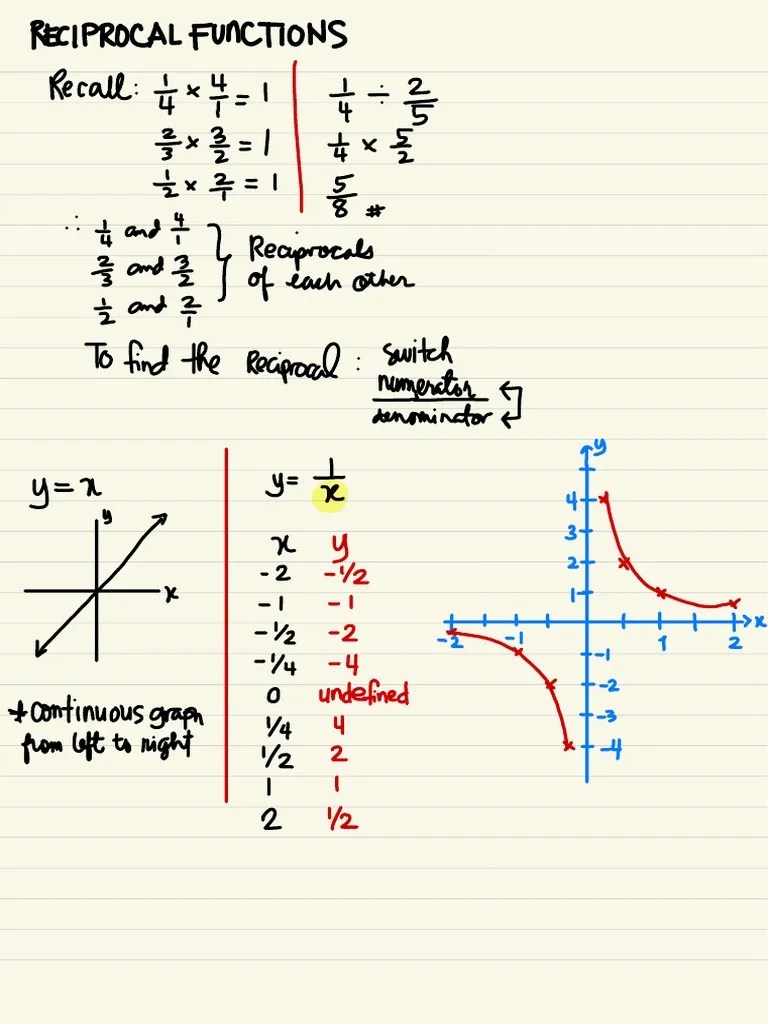 RECIPROCAL FUNCTIONS
Recall: 1/4 × 4/1 = 1
2/3 × 3/2 = 1
1/2 × 2/1 = 1
1/4 ÷ 2/5
1/4 × 5/2
5/8 #
∴ 1/4 and 4/1
2/3 and 3/2
1/2 and 2/1
Reciprocals
of each other
To find the Reciprocal: switch
numerator
denominator
y = x
y
x
*continuous graph
from left to right
y = 1/x
x y
-2 -1/2
-1 -1
-1/2 -2
-1/4 -4
0 undefined
1/4 4
1/2 2
1 1
2 1/2
y
4
3
2
1
-2 -1 1 2 x
-1
-2
-3
-4